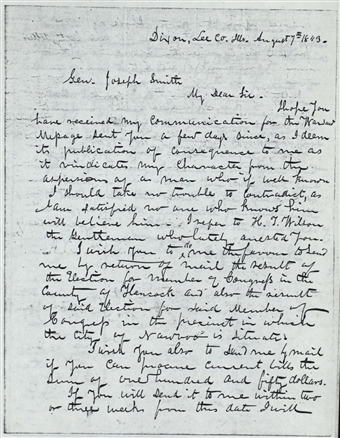 Dixon, Lee Co. Ills. August 7th 1843.
Gen. Joseph Smith
My Dear Sir.
I hope You
have received my Communication for the Warsaw
Message sent you a few days since, as I deem
its publication of consequence to me as
it vindicates my Character from the
aspersions of a man who if well known
I should take no trouble to contradict, as
I am satisfied no one who knows him
will believe him. I refer to H. T. Wilson
the Gentleman who lately arrested You.
I wish You to do me the favour to send
me by return of mail the result of
the Election for member of Congress in the
County of Hancock and also the result
of said Election for said Member of
Congress in the precinct in which
the City of Nauvoo is situate.
I wish You also to send me by mail
if you can procure current bills the
sum of one hundred and fifty dollars.
If You will send it to me within two
or three weeks from this date I will